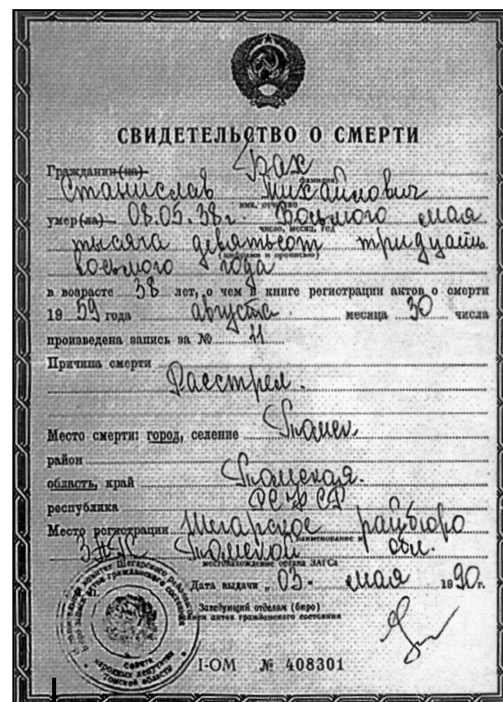 СВИДЕТЕЛЬСТВО О СМЕРТИ
Гражданин (ка) Вах
фамилия
Станислав Михайлович
имя, отчество
умер(ла) 08.05.38 г Восьмого мая
число, месяц, год
тысяча девятьсот тридцать
(цифрами и прописью)
восьмого года
в возрасте 38 лет, о чем в книге регистрации актов о смерти
19 59 года августа месяца 30 числа
произведена запись за № 11
Причина смерти
Расстрел.
Место смерти: город, селение Томск
район
область, край Томская.
республика РСФСР
Место регистрации Шегарское райбюро
наименование и
ЗАГС Томской обл.
местонахождение органа ЗАГСа
Дата выдачи „ 03 - мая 1990 г.
Заведующий отделом (бюро)
записи актов гражданского состояния
Шегарского районного
гражданского состояния
Совета
народных депутатов
Томской области
I-ОМ № 408301